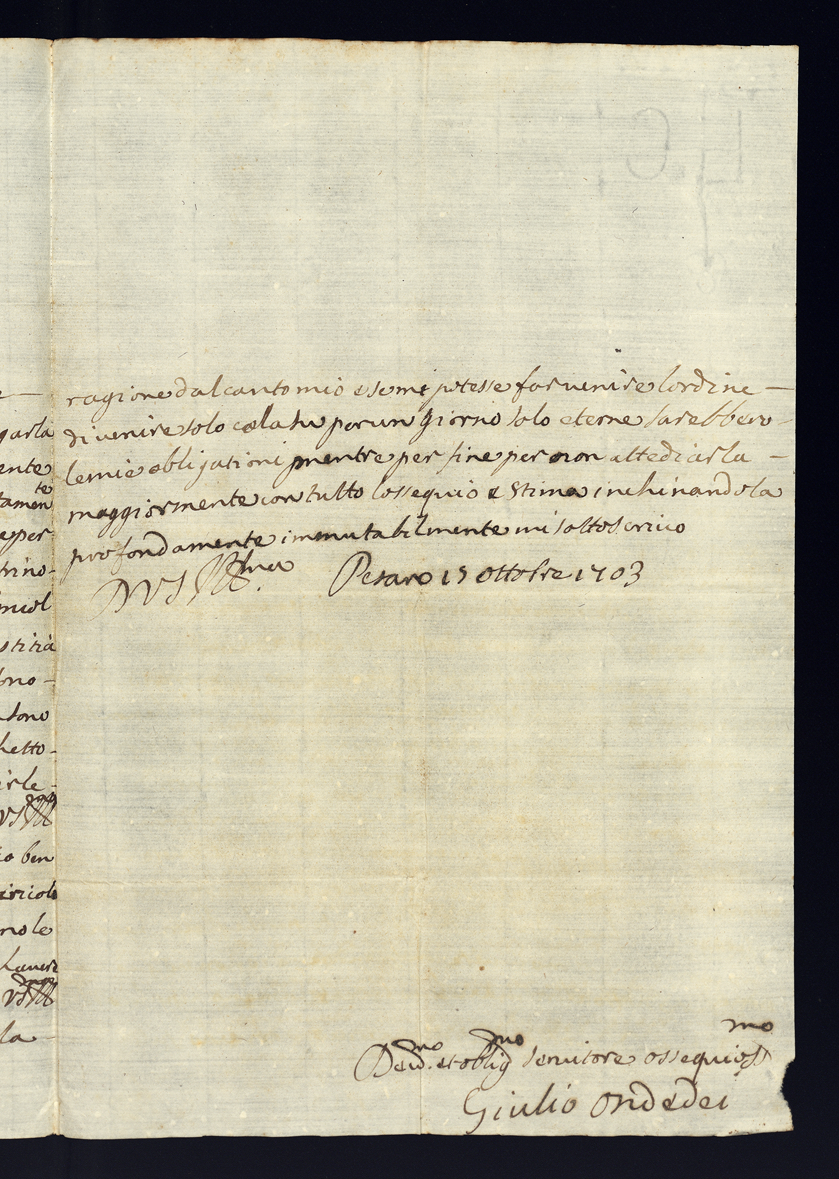 garla
ente
tamen^te
e per
trino-
miol
stitia
bno-
sono
hetto-
irle-
VS Ill^ma
o ben
iricolo
nole
haver
VS Ill^ma
la -
ragione dal canto mio e se mi potesse far venire l ordine -
di venire solo costà su per un giorno solo eterne sarebbero -
le mie obligationi mentre per fine per non attediarla -
maggiormente con tutto l ossequio e stima inchinandola
profondamente immutabilmente mi sottoscrivo
D VS Ill^ma. Pesaro 15 ottobre 1703
Dev^mo. et oblig^mo servitore ossequios^mo
Giulio Ondedei